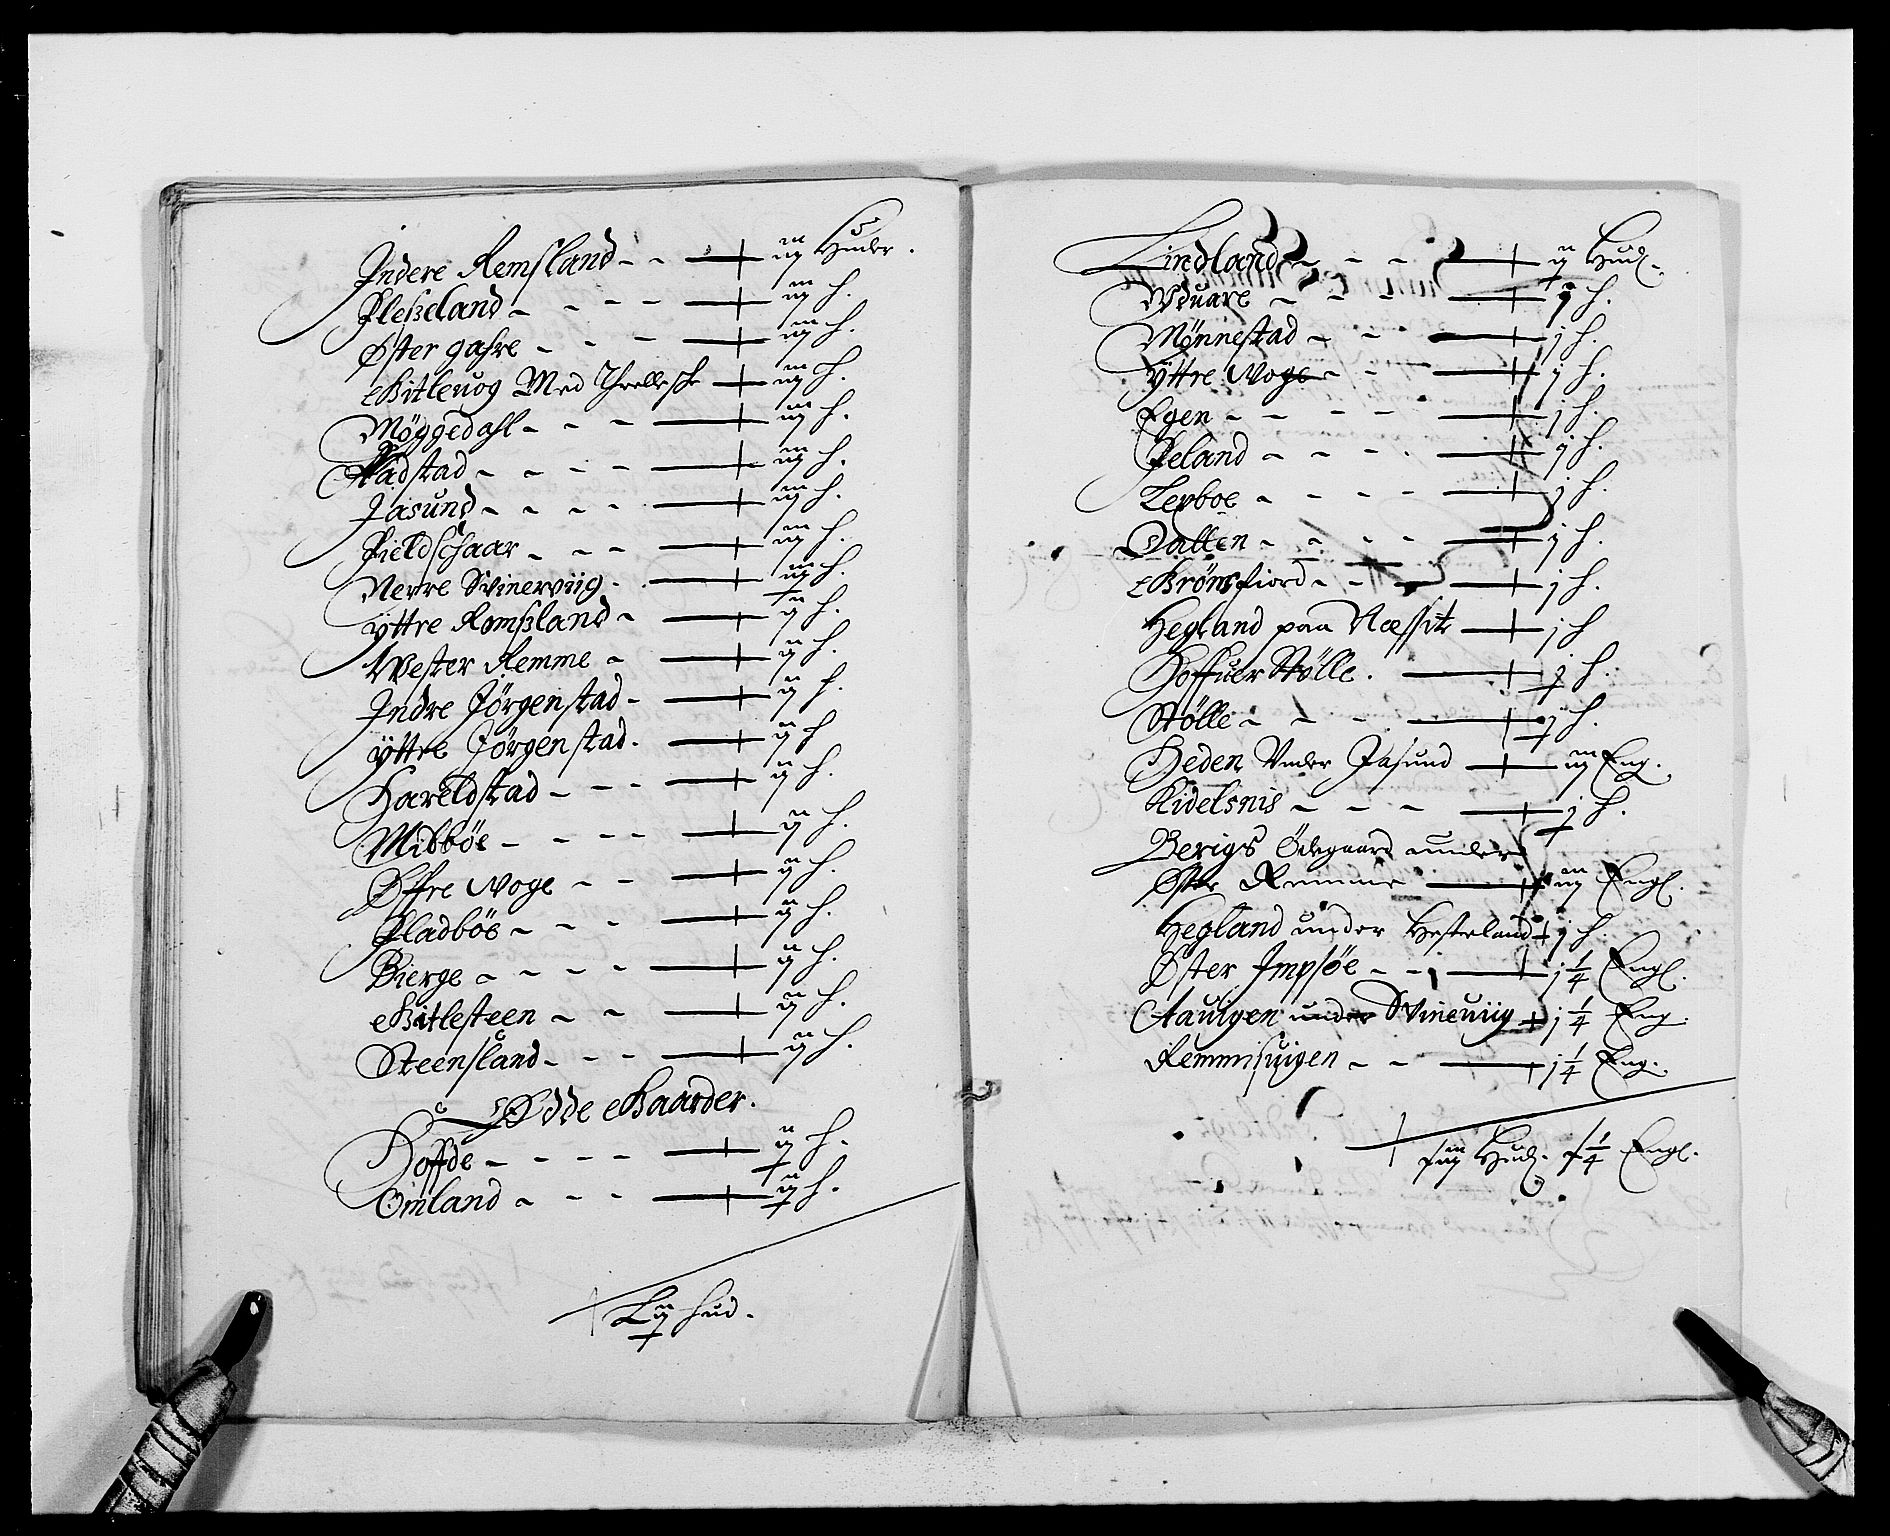 Indere Remsland - - iij Huder.
Fleßeland - - - - iij h.
Øster gahre - - - iij h.
Gitleuog Med Threllesch iij h.
Møggedahl - - - iij h.
Radstad - - - - iij h.
Jasund - - - - iij h.
Fieldschaar - - - iij h.
Nerre Svinerviig - iij h.
Yttre Remßland - ij h.
Wester Remme - ij h.
Indre Jörgenstad - ij h.
Yttre Jörgenstad. ij h
Hareldstad - - - ij h.
Midbôe - - - - ij h.
Øffre Woge - - ij h.
Fladbôe - - - ij h.
Bierge - - - - ij h.
Gitlesteen - - ij h.
Steensland - - - ij h.
Ødde Gaarder.
Hoffde - - - - ij h.
Omland - - - ij h.
L ij hud.
Lindland - - - ij Hud.
Wduare - - - j h.
Mønnestad - - j h.
Yttre Woge - - j h.
Egen - - - - j h.
Feland - - - j h.
Lerboe - - - - j h.
Dallen - - - - j h.
Grønsfiord - - j h.
Hegland paa Næssit j h
Hoffuer Stølle. j h.
Stølle - - - j h.
Heden Under Jasund iij Eng.
Kidelsnis - - - j h.
Berigs Ødegaard under
Øster Remme iij Engl.
Hegland under Hesteland j h.
Øster Impsôe - - j 1/4 Engl.
Aauigen under Svineuiig j 1/4 Eng.
Remmisuigen - - j 1/4 Eng.
Hud. 1/4 Engl.